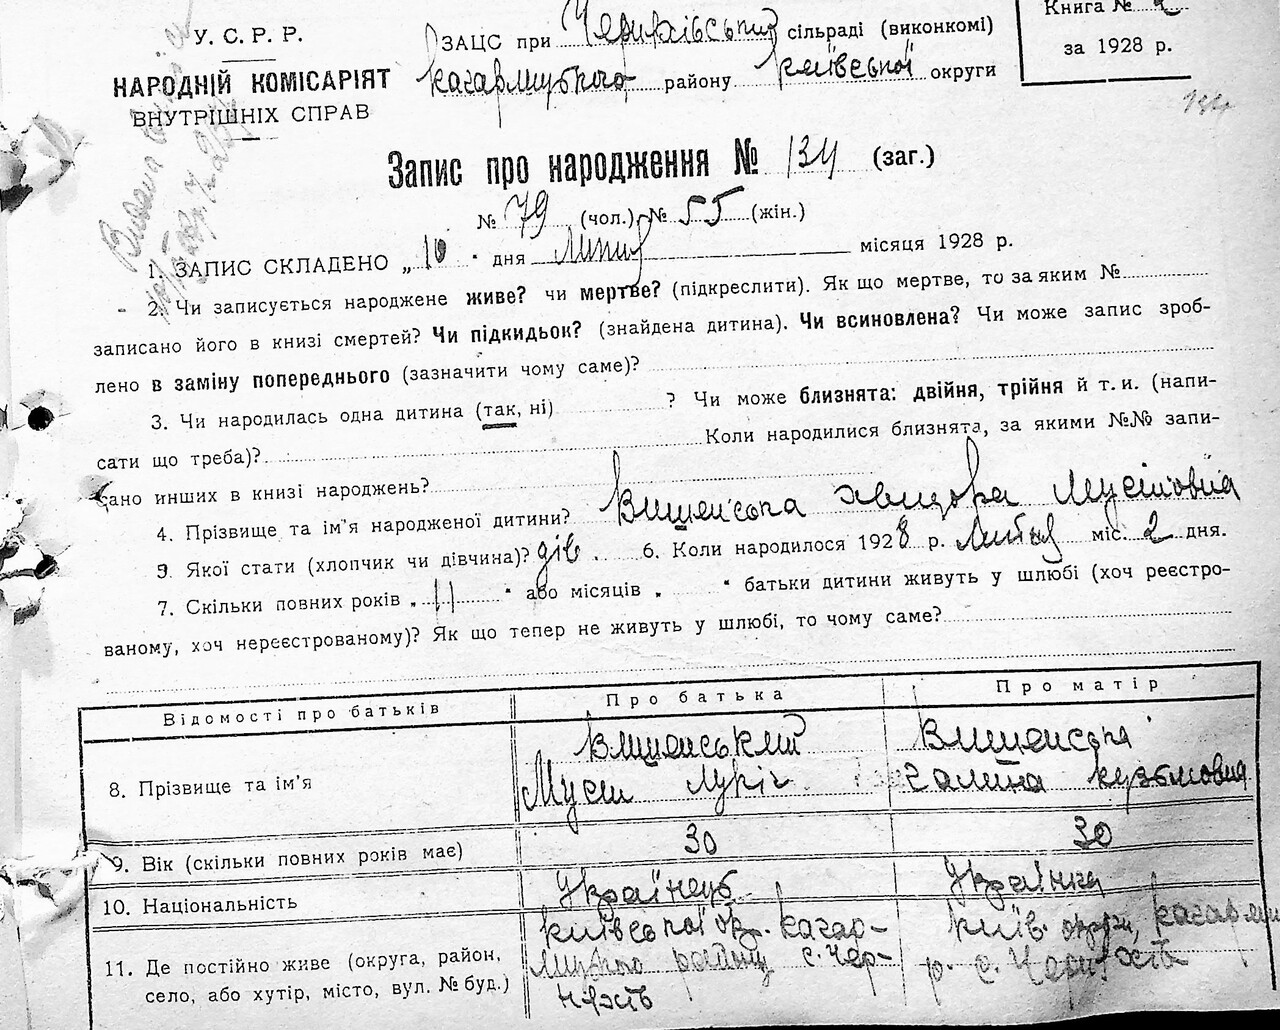 У. С. Р. Р.
НАРОДНІЙ КОМІСАРІЯТ
ВНУТРІШНІХ СПРАВ
ЗАЦС при сільраді (виконкомі)
Кагарлицького району Київської округи
Книга №
за 1928 р.
134
Запис про народження № 134 (заг.)
№ 79 (чол.) № 55 (жін.)
1. ЗАПИС СКЛАДЕНО „ 10 " дня Липня місяця 1928 р.
2. Чи записується народжене живе? чи мертве? (підкреслити). Як що мертве, то за яким №
записано його в книзі смертей? Чи підкидьок? (знайдена дитина). Чи всиновлена? Чи може запис зроб-
лено в заміну попереднього (зазначити чому саме)?
3. Чи народилась одна дитина (так, ні) ? Чи може близнята: двійня, трійня й т. и. (напи-
сати що треба)? Коли народилися близнята, за якими №№ запи-
сано инших в книзі народжень?
4. Прізвище та ім'я народженої дитини? Вишенська Мусіївна
5. Якої статі (хлопчик чи дівчина)? дів. 6. Коли народилося 1928 р. Липня міс. 2 дня.
7. Скільки повних років „ 11 " або місяців „ " батьки дитини живуть у шлюбі (хоч реєстро-
ваному, хоч нереєстрованому)? Як що тепер не живуть у шлюбі, то чому саме?
Відомості про батьків Про батька Про матір
Вишенський Вишенська
8. Прізвище та ім'я Мусій Галина Кузьмовна
9. Вік (скільки повних років має) 30 30
10. Національність Українець Українка
Київської окр. Кагар- Київ. округи, Кагарли
11. Де постійно живе (округа, район, лицького району с. Чер- р. с.
село, або хутір, місто, вул. № буд.)